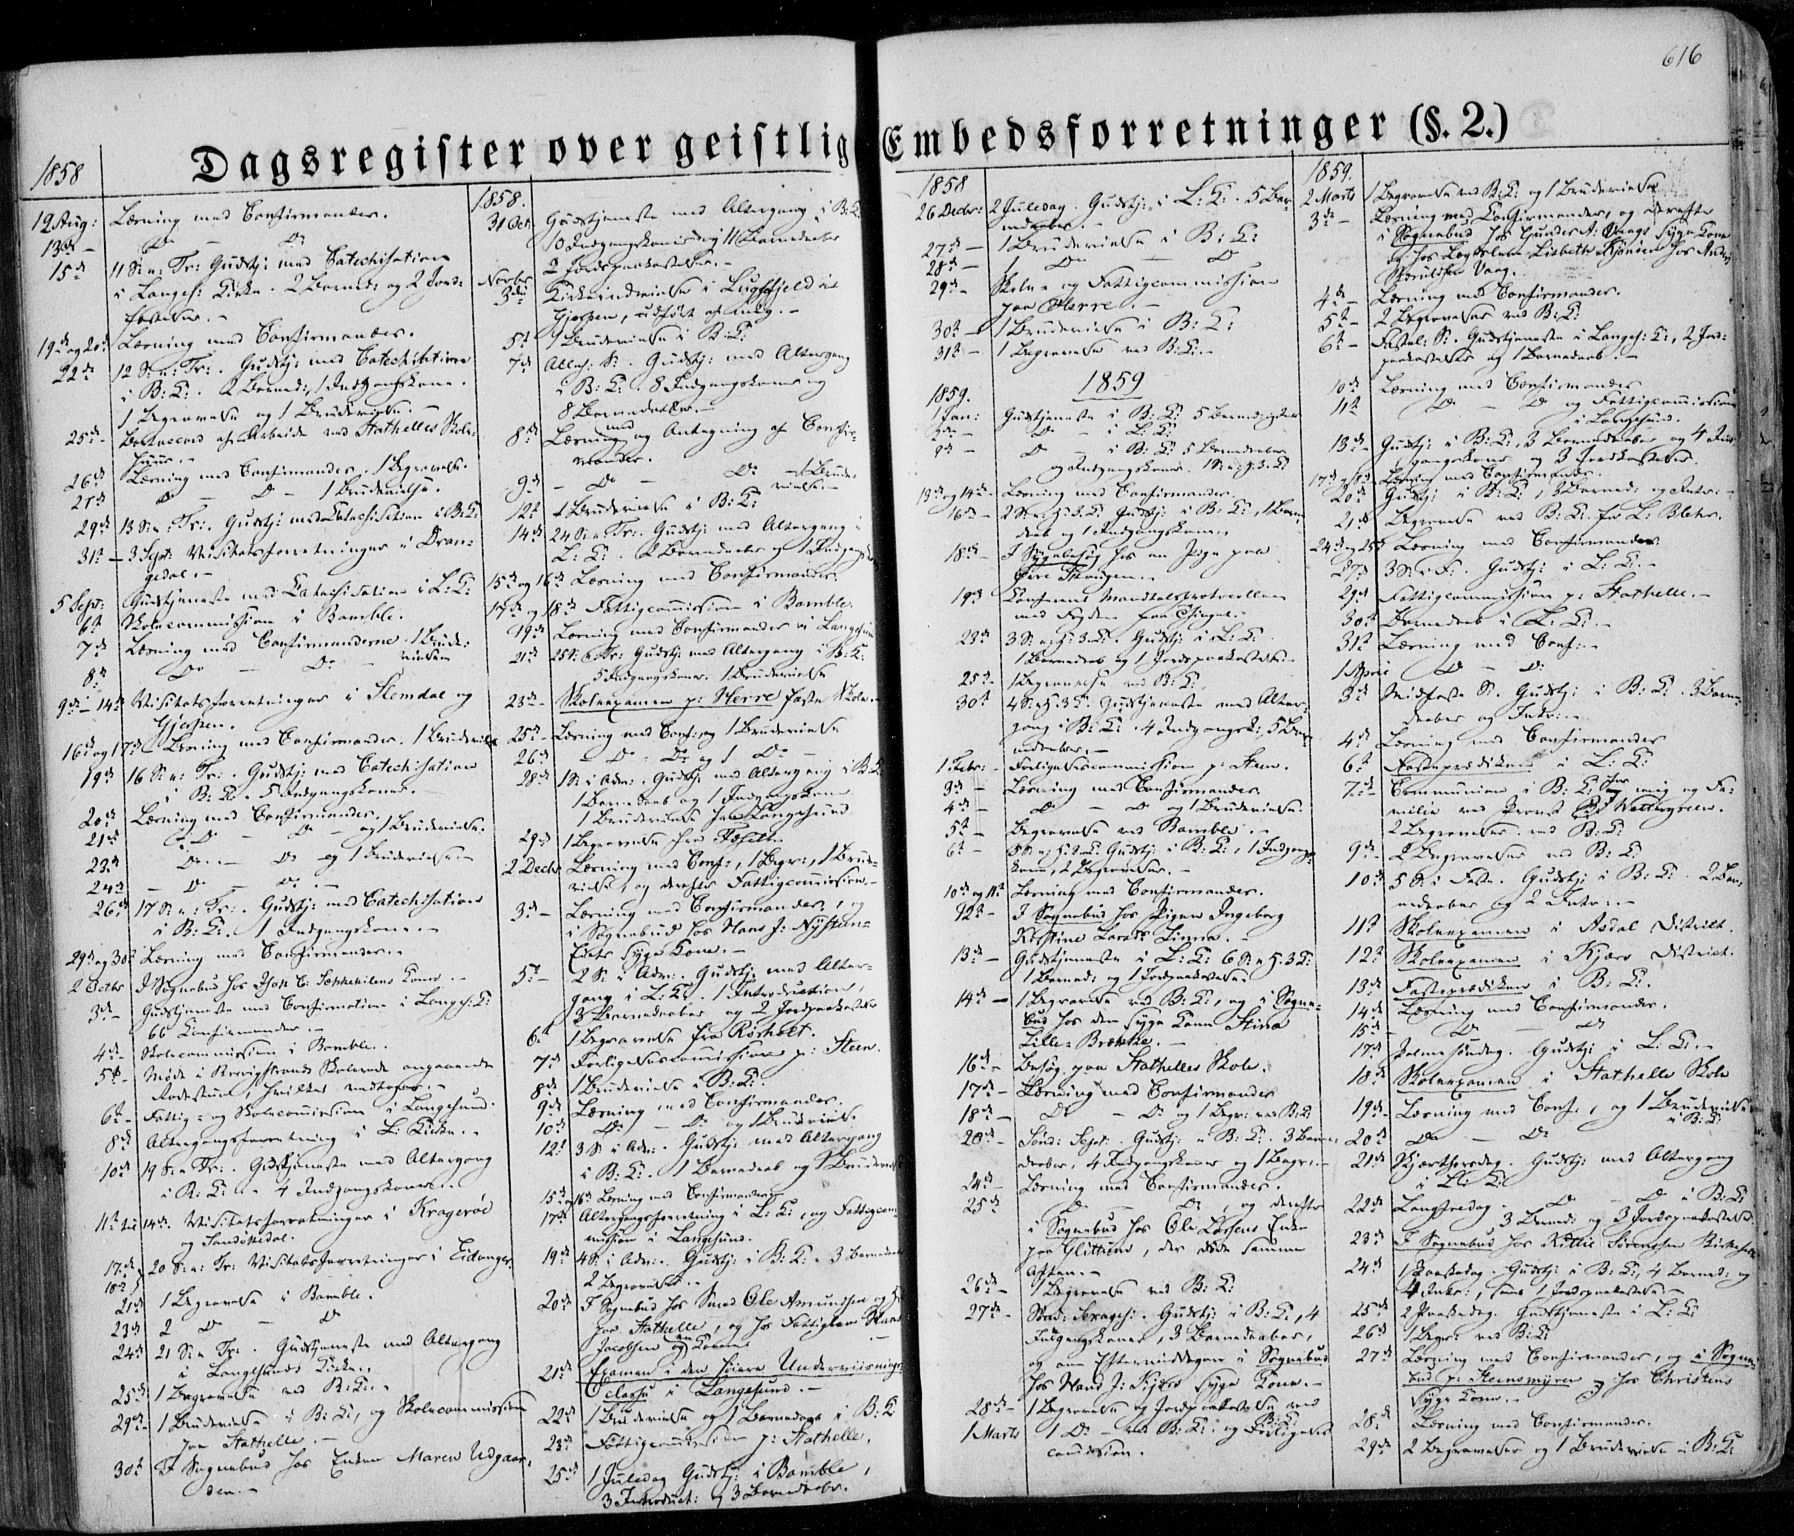 616
Dagsregister over geistlig Embedsforretninger (§. 2.)
1858
12 Aug: Læsning med Confirmander.
13de – Do – Do
15de 11 S: e: Tr: Gudstj: med Catechisation
i Langes: Kirke. 2 Barned: og 2 Jords-
fæstelser. –
19de og 20de Læsning med Confirmander.
22de 12 S: e: Tr: . Gudstj: med Catechisation
i B: K: . 2 Barned: , 1 Indgangskone.
1 Begravelse og 1 Brudevielse. –
25de – af Arbeide ved Stathelles Skole-
huus. –
26de Læsning med Confirmander. 1 Begravelse.
27de Do – Do – 1 Brudevielse.
29de 13 S: e: Tr: . Gudstj: med Catechisation i B: K:
31te – 3 Sept: Visitatsforretninger i Dran-
gedal. –
5 Sept: Gudstjeneste med Catechisation i L: K:
6te Skolecommission i Bamble.
7de Læsning med Confirmanderne. 1 Brude-
vielse
8de Do – Do –
9de – 14de Visitatsforretninger i Slemdal og
Gjerpen.
16de og 17de Læsning med Confirmander. 1 Brudevielse
19de 16 S: e: Tr: . Gudstj: med Catechisation
i B: K: . 5 Indgangskoner. –
20de Læsning med Confirmander.
21de Do – Do – og 1 Brudevielse.
23de Do – Do og 1 Brudevielse. –
24de – Do – Do –
26de 17 S: e: Tr: . Gudstj: med Catechisation
i B: K: . 1 Indgangskone. –
29de og 30te Læsning med Confirmander. –
2 Octbr I Sognebud hos Kone –
3de – Gudstjeneste med Confirmation i Langes: K:
66 Confirmander. –
4de – Skolecommission i Bamble. –
5te – Møde i Brevigstrands Skolekreds angaaende
6te – Fattig- og Skolecommission i Langesund.
8de Altergangsforretning i L: Kirke. –
10de 19 S: e: Tr: . Gudstjeneste med Altergang
i B: K: – 4 Indgangskoner. –
11te til 14de. Visitatsforretninger i Kragerøe
og Sandøkedal.
17de 20 S: e: Tr: Visitatsforretninger i Eidanger
18de
21de 1 Begravelse i Bamble.
23de 2 Do – Do
24de 21 S: e: Tr: . Gudstjeneste med Altergang
i Langesunds Kirke. –
25de 1 Begravelse ved B: K: –
29de – 1 Brudevielse i B: K: , og Skolecommission
paa Stathelle. –
30te I Sognebud hos Enken Maren Udgaar-
den. –
1858.
31 Oct. Gudstjeneste med Altergang i B: K:
10 Indgangskoner og 11 Barnedaaber
2 Jordspaakastelser. –
Novbr
3de Kirkeindvielse i Luxefjeld i
Gjerpen, udført af mig. –
5te 1 Brudevielse i B: K:
7de Alleh: S: . Gudstj: med Altergang
i B: K: . 8 Indgangskoner og
8 Barnedaaber. –
8de Læsning med og Antagning af Confir-
mander.
9de – Do – Do – 1 Brude-
vielse. –
12te 1 Brudevielse i B: K:
14de 24 S: e: Tr: . Gudstj: med Altergang i
L: K: . 2 Barnedaaber og 1 Indgangsk:
15de og 16de Læsning med Confirmander.
17de og 18de Fattigcommission i Bamble.
19de Læsning med Confirmander i Langesund
21de 25 S: e: Tr: Gudstj: med Altergang i B: K:
5 Indgangskoner. 1 Brudevielse
23de – Skoleexamen p: Herre faste Skole. –
25de – Læsning med Conf: og 1 Brudevielse
26de – Do – Do og 1 Do –
28de 1 S: i Adv: . Gudstj: med Altergang i B: K:
1 Barnedaab og 1 Indgangskone
1 Brudevielse fra Langesund
29de 1 Begravelse fra Fosseln.
2 Decbr Læsning med Conf: , 1 Begr: , 1 Brude-
vielse, og derefter Fattigcommission. –
3de – Læsning med Confirmander, og
i Sognebud hos Hans J: Nysteen-
Eiets syge Kone. –
5te – 2 S: i Adv: . Gudstj: med Alter-
gang i L: K: . 1 Introduction,
3 Barnedaaber og 2 Jordpaakastelser
6te 1 Begravelse fra Rørholt.
7de Forligelsescommission p: Steen.
8de 1 Brudevielse i B: K:
9de Læsning med Confirmander.
10de Do – Do og 1 Brudevielse.
12te 3 S: i Adv: . Gudstj: med Altergang
i B: K: . 1 Barnedaab og 1 Brudevielse
15de og 16de Læsning med Confirmander
17de Altergangsforretning i L: K: , og Fattigcom-
mission i Langesund.
19de 4 S: i Adv: . Gudstj: i B: K: . 3 Barnedaab
2 Begravelser. –
20de I Sognebud hos Smed Ole Amundsen og
paa Stathelle, og hos Fattiglem Hans
Jacobsen en Kone. –
21de Examen i den høiere Underviisnings-
classe i Langesund. –
22de 1 Brudevielse og 1 Barnedaab i B: K
23de Fattigcommission p: Stathelle.
25de 1 Juledag Gudstj: i Bamble,
3 Introduct: og 3 Barnedaab.
1858
26 Decbr: 2 Juledag. Gudstj: i L: K: . 5 Bar-
nedaaber. –
27de – 1 Brudevielse i B: K:
28de – 1 Do – Do
29de – Skole- og Fattigcommission
paa Herre. –
30te – 1 Brudevielse i B: K:
31te – 1 Begravelse ved B: K: –
1859
1859.
1 Jan: Gudstjeneste i B: K: 5 Barnedaaber
2de – Do – i L: K:
9de Do – i B: K: 5 Barnedaaber
og Indgangskoner. 1 S: e: H: 3 K:
13de og 14de – Læsning med Confirmander.
16de – 2 S: e: H: 3 K: Gudstj: i B: K: , 1 Barne-
daab og 1 Indgangskone.
18de – I Sygebesøg hos en Pige paa
Øvre Skougen. –
19de Confereret Mandtalsprotocollen
med Fogden paa Tinget. –
23de – 3 S: e: H: 3 K: . Gudstj: i L: K:
1 Barnedaab og 1 Jordspaakastelse –
25de – 1 Begravelse ved B: K:
30te 4 S: e: H: 3 K: Gudstjeneste med Alter-
gang i B: K: . 4 Indgangsk: , 5 Bar-
nedaaber. –
1 Febr: – Forligelsescommission p: Steen.
3de – Læsning med Confirmander.
4de – Do – Do og 1 Brudevielse.
5te – Begravelse ved Bamble. –
6te – 5 S: e: H: 3 K: Gudstj: i B: K: , 1 Indgangs-
kone, 2 Begravelser. –
10de og 11te Læsning med Confirmander.
12te – I Sognebud hos Pigen Ingeborg
Kirstine Larsdr Linna. –
13de – Gudstjeneste i L: K: 6 S: e H: 3 K:
1 Barned: og 1 Jordpaakastelse
14de – 1 Begravelse ved B: K: , og i Sogne-
bud hos den syge Kone Stina
Lille-Brække. –
16de – Besøg paa Stathelles Skole.
17de – Læsning med Confirmander
18de – Do – Do og 1 Begr: ved B: K:
20de – Sønd: Sept: . Gudstj: i B: K: . 3 Barne-
daaber, 4 Indgangskoner og 1 Begr: –
24de – Læsning med Confirmander.
25de Do – Do , og derefter
i Sognebud hos Ole Larsens Enke
paa Glittum, der døde samme
Aften. –
26de – 1 Begravelse ved B: K:
27de – Sønd: Sexages: . Gudstj: i B: K: , 4
Indgangskoner, 3 Barnedaaber,
og om Eftermiddagen i Sognebud
hos Hans J: syge Kone. –
28de – 1 Begravelse og Jordpaakastelse ved
B: K:
1 Marts 1 Do – ved B: K: og Forligelses
commission.
1859.
2 Marts 1 Begravelse ved B: K: og 1 Brudevielse
3de – Læsning med Confirmander, og derefter
i Sognebud hos Gunder A: Vaags syge Kone
og hos Logdslem Lisbeth hos Anders
Vaag.
4de – Læsning med Confirmander.
5te – 2 Begravelser ved B: K:
6te – Fastel: S: . Gudstjeneste i Langes: K: , 2 Jord-
paakastelser og 1 Barnedaab. –
10de Læsning med Confirmander
11te Do – Do og Fattigcommission
i Langesund.
13de – Gudstj: i B: K: , 3 Barnedaaber og 4 Ind-
gangskoner og 3 Jordkastelser.
17de og 18de – Læsning med Confirmander.
20de Gudstj: i B: K: , Barned: og Intr: –
21de Begravelse ved B: K: for L: Blehr.
24de og 25de Læsning med Confirmander
27de 3 S: i F: . Gudstj: i L: K: –
29de Fattigcommission p: Stathelle. –
30te Barnedaab i L: K: –
31te Læsning med Conf: –
1 April Do – Do
3de Midfaste S: . Gudstj: i B: K: . 3 Barne-
daaber og Intr: –
4de Læsning med Confirmander
6te Fasteprædiken i L: K:
7de – Communion i B: K: for mig og Fa-
milie ved Provst Wettergreen.
2 Begravelser ved B: K:
9de – 2 Begravelser ved B: K
10de 5 S: i Faste. Gudstj: i B: K: . 2 Bar-
nedaaber og 2 Intr: –
11te Skoleexamen i Asdal District.
12te Skoleexamen i Kjær District.
13de Fasteprædiken i B: K.
14de Læsning med Confirmander.
15de Do – Do
17de Palmesøndag. Gudstj: i L: K: –
18de Skoleexamen i Stathelle Skole
19de – Læsning med Conf: , og 1 Brudevielse
i B: K:
20de Do – Do
21de Skjærthorsdag. Gudstj: med Altergang
i L: K:
22de Langfredag. Do – Do i B: K:
3 Barned: og 3 Jordspaakastelser
23de I Sognebud hos Kittil Sørensen
24de 1 Paaskedag. Gudstj: i B: K: , 4 Barned: og
4 Intr: , samt 1 Jordpaakastelse. –
25de 2 Paaskedag. Gudstjeneste i L: K:
26de 1 Begr: ved B: K:
27de Læsning med Confirmander, og i Sogne-
bud p: Steensmyren og hos Christens
syge Kone. –
28de Læsning med Confirmander.
29de 2 Begravelser og 1 Brudevielse i B: K: